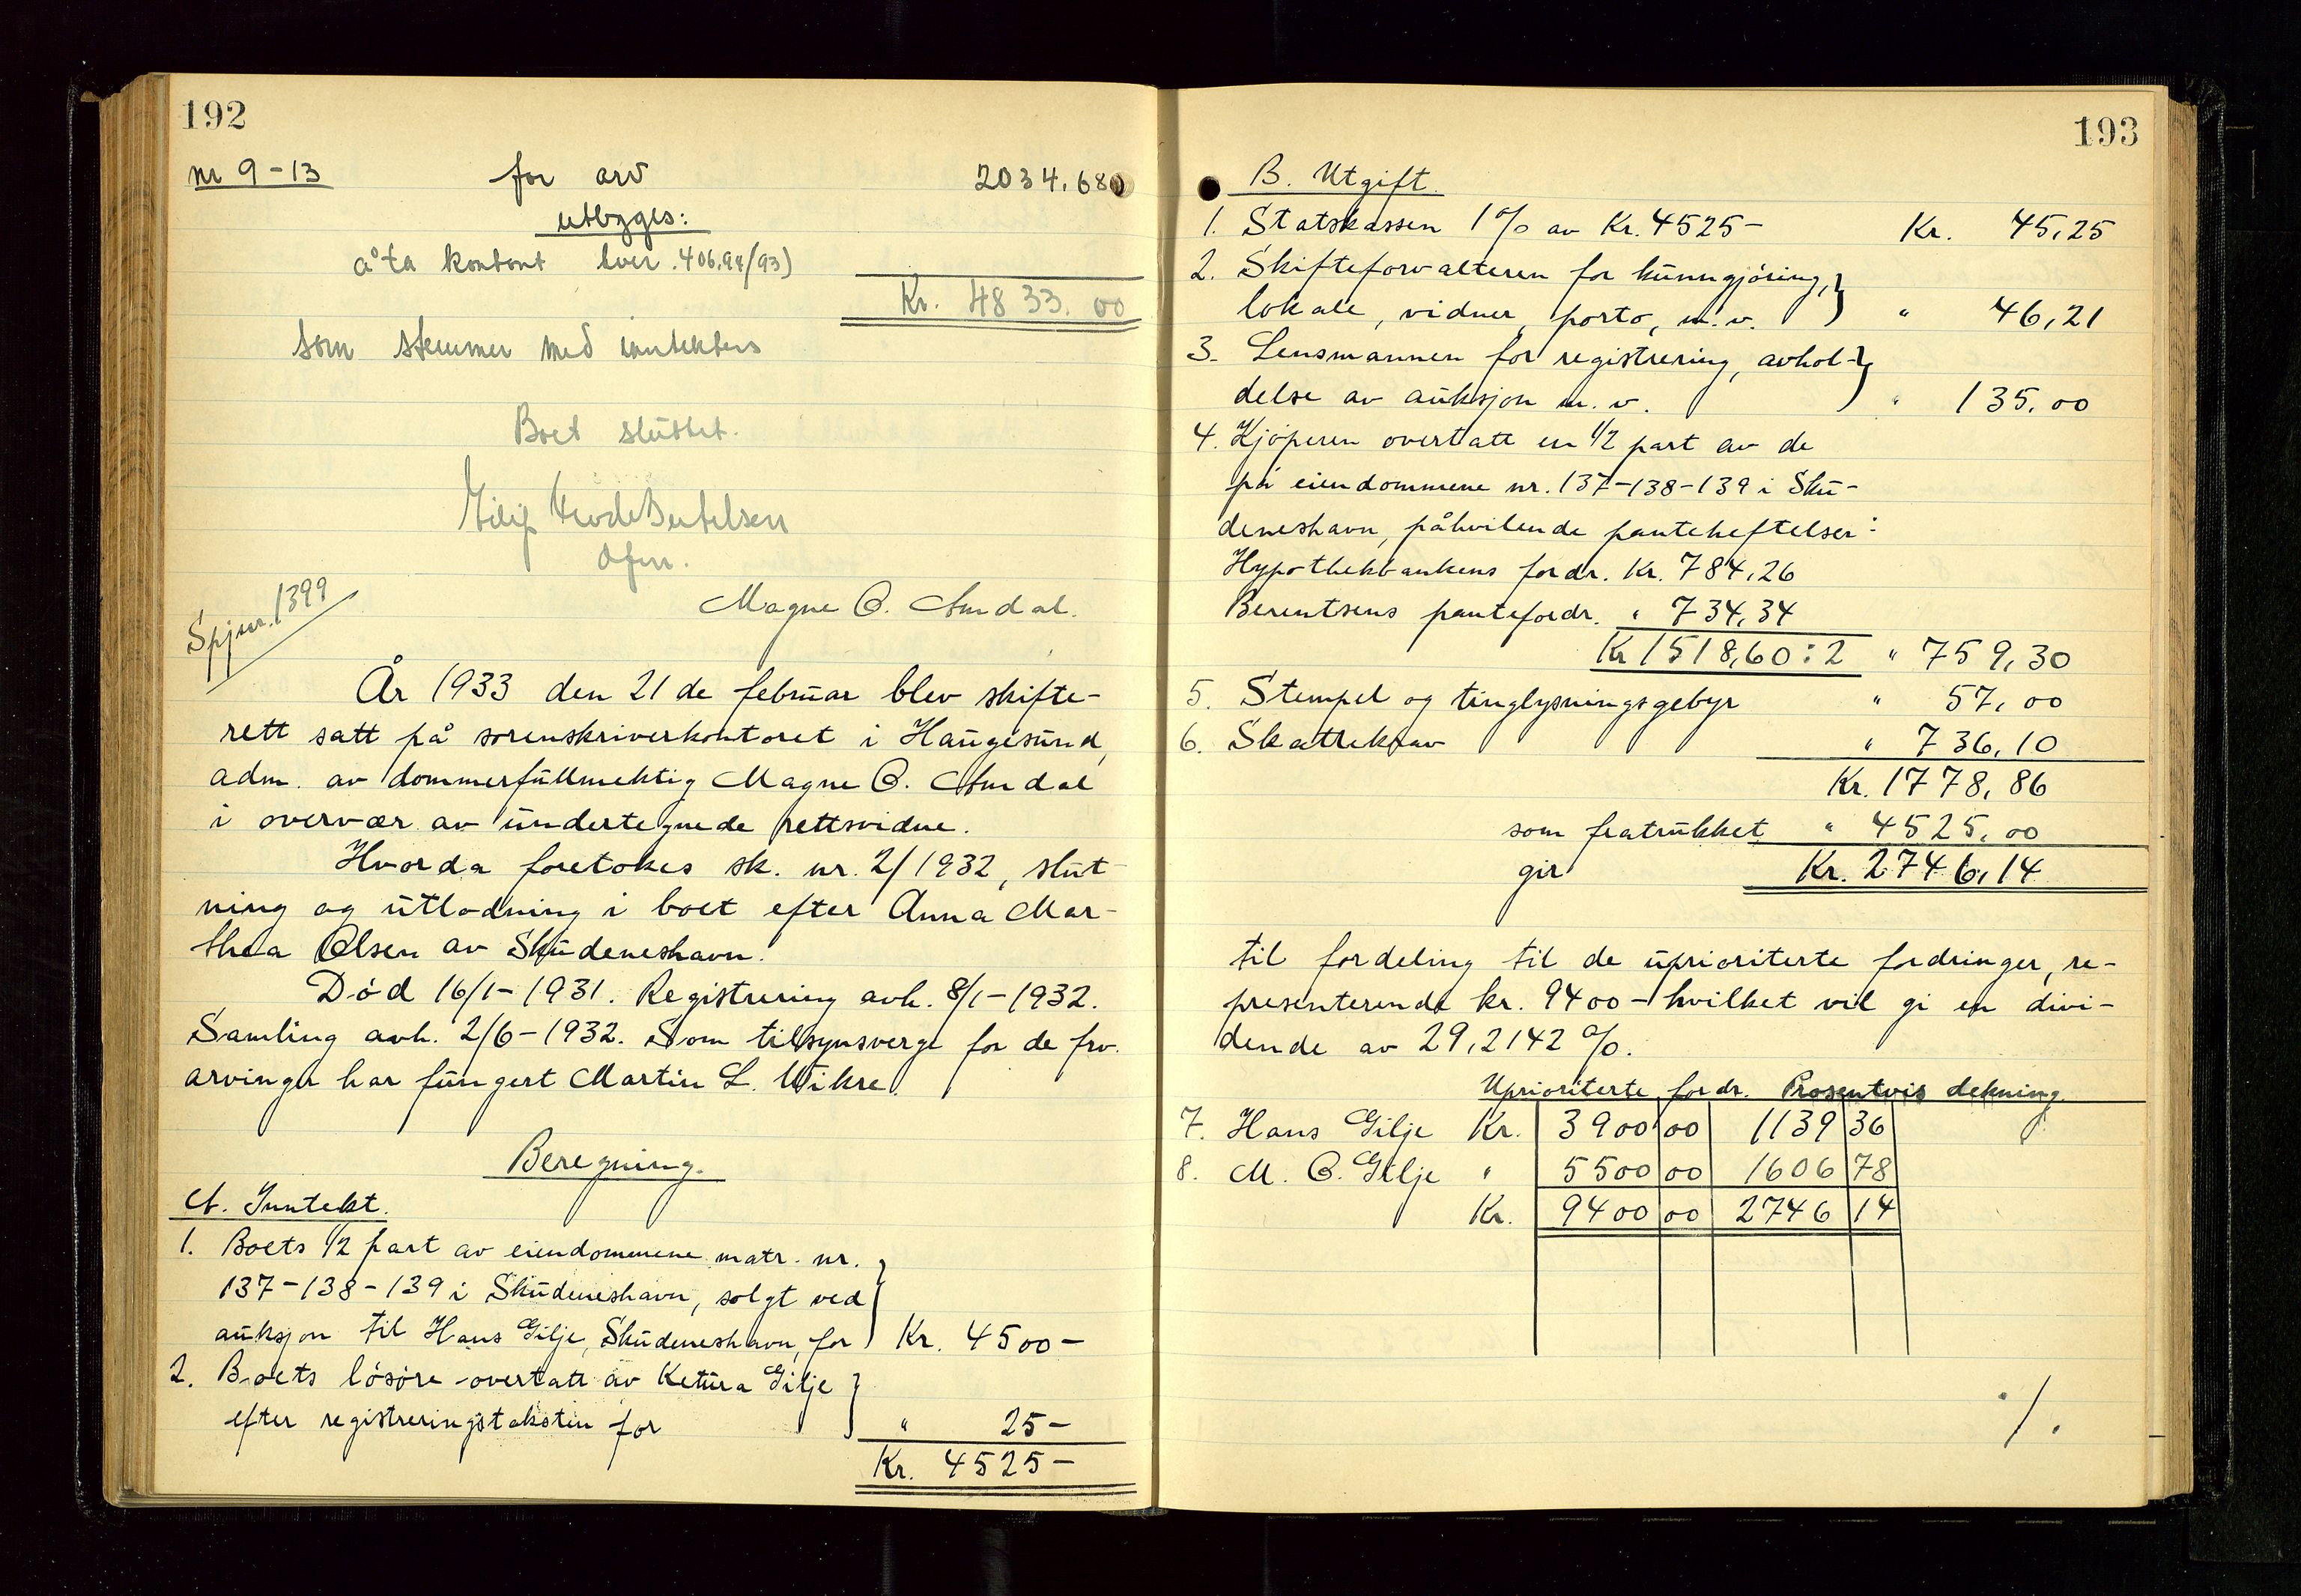 192
nr 9-13 for arv 2034.68
utlegges:
à ta kontant hver 406,94/93)
Kr. 4833.00
som stemmer med inntekten
Boet sluttet.
Ofm.
Magne O. Amdal.
Spjnr. 1399
År 1933 den 21 de februar blev skifte-
rett satt på sorenskriverkontoret i Haugesund,
adm. av dommerfullmektig Magne O. Amdal
i overvær av undertegnede rettsvidne.
Hvorda foretokes sk. nr. 2/1932, slut-
ning og utlodning i boet efter Anna Mar-
thea Olsen av Skudeneshavn.
Död 16/1-1931. Registrering avh. 8/1-1932.
Samling avh. 2/6-1932. Som tilsynsverge for de frv.
arvinger har fungert Martin L. Wikre.
Beregning.
A. Inntekt.
1. Boets 1/2 part av eiendommene matr. nr.
137-138-139 i Skudeneshavn, solgt ved
auksjon til Hans Gilje, Skudeneshavn, for Kr. 4500-
2. Boets lösöre overtatt av Ketura Gilje
efter registreringstaksten for " 25-
Kr. 4525-
193
B. Utgift.
1. Statskassen 1% av Kr. 4525- Kr. 45,25
2. Skifteforvalteren for kunngjöring,
lokale, vidner, porto, m.v. " 46,21
3. Lensmannen for registrering, avhol-
delse av auksjon m.v. " 135.00
4. Kjöperen overtatt en 1/2 part av de
på eiendommene nr. 137-138-139 i Sku-
deneshavn, påhvilende panteheftelser:
Hypothekbankens fordr. Kr. 784,26
Berentsens pantefordr. " 734,34
Kr 1518,60:2 " 759,30
5. Stempel og tinglysningsgebyr " 57,00
6. Skattekrav " 736,10
Kr. 1778,86
som fratrukket " 4525,00
gir Kr. 2746,14
til fordeling til de uprioriterte fordringer, re-
presenterende kr. 9400- hvilket vil gi en divi-
dende av 29,2142%.
Uprioriterte fordr. Prosentvis dekning
7. Hans Gilje Kr. 3900 00 1139 36
8. M. O. Gilje " 5500 00 1606 78
Kr. 9400 00 2746 14
./.